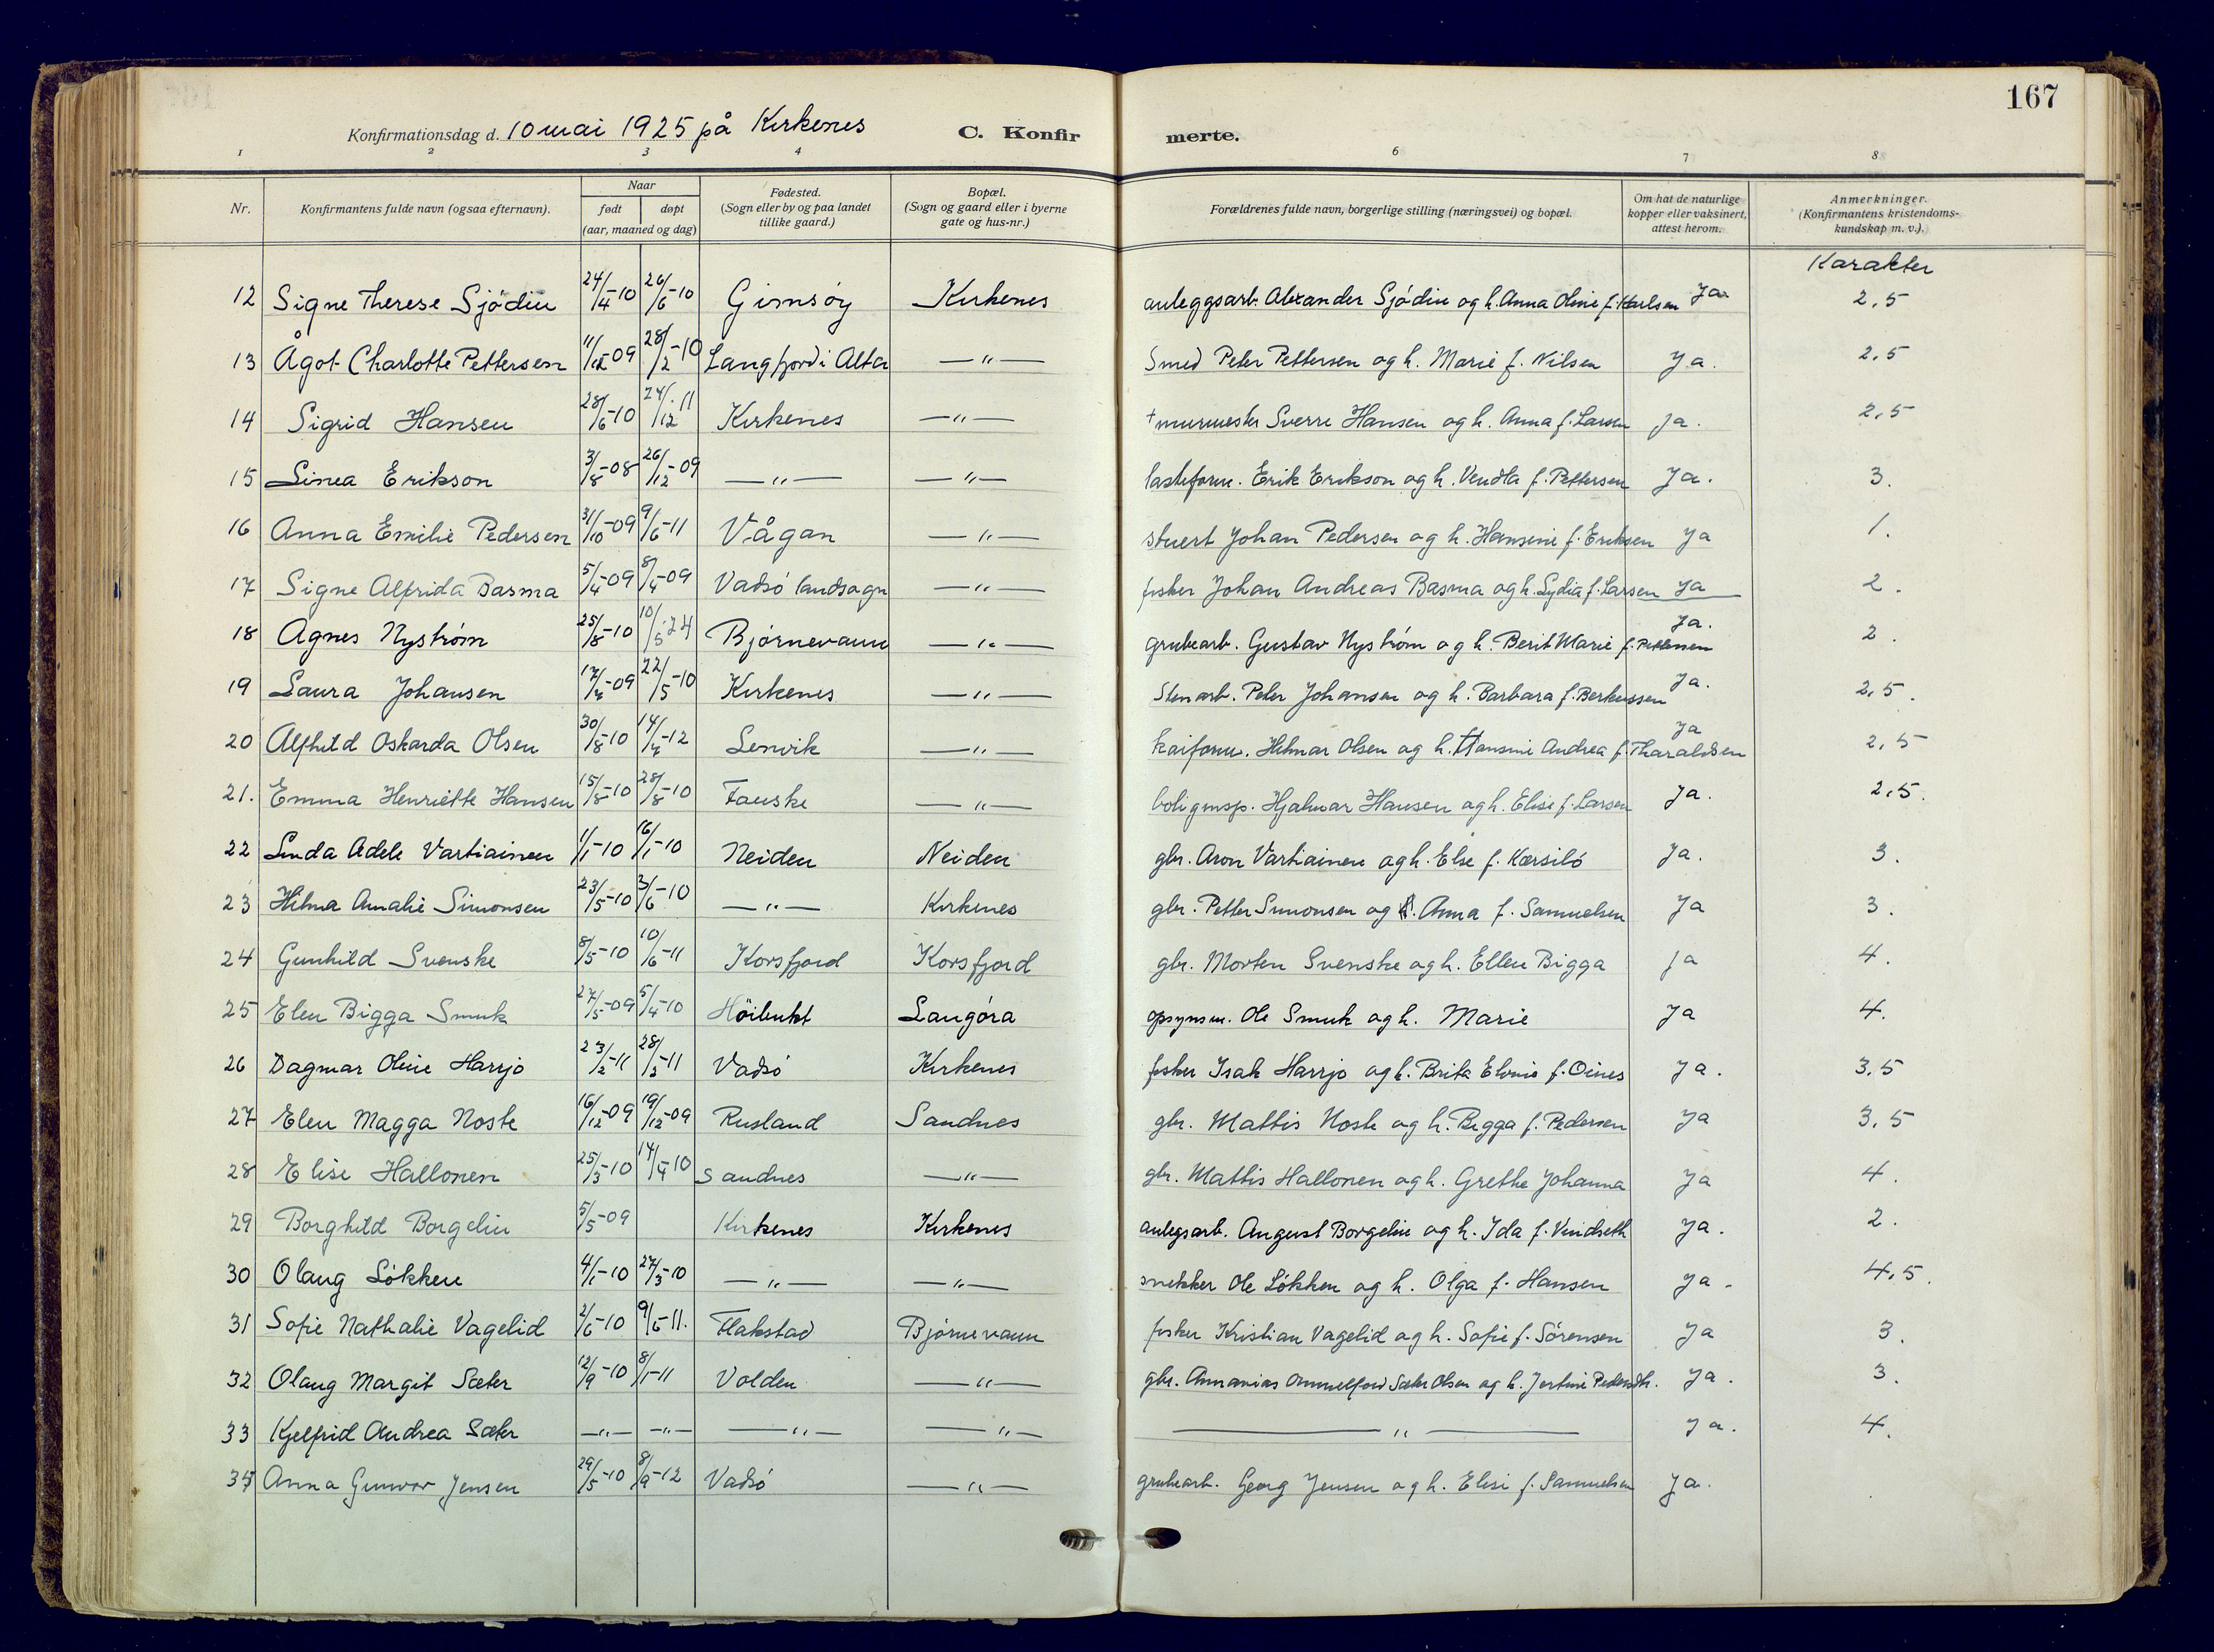 167
Konfirmationsdag d. 10 mai 1925 på Kirkenes C. Konfirmerte.
1 2 3 4 6 7 8
Nr. Konfirmantens fulde navn (ogsaa efternavn). Naar født døpt (aar, maaned og dag) Fødested. (Sogn eller by og paa landet tillike gaard.) Bopæl. (Sogn og gaard eller i byerne gate og hus-nr.) Forældrenes fulde navn, borgerlige stilling (næringsvei) og bopæl. Om hat de naturlige kopper eller vaksinert, attest herom. Anmerkninger. (Konfirmantens kristendoms-kundskap m. v.).
Karakter
12 Signe Therese Sjödin 24/4-10 26/6-10 Gimsöy Kirkenes anleggsarb. Alexander Sjödin og h. Anna Oline f. Karlsen Ja 2,5
13 Ågot Charlotte Pettersen 11/12-09 28/2-10 Langfjord i Alta —"— Smed Peter Pettersen og h. Marie f. Nilsen Ja. 2,5
14 Sigrid Hansen 28/6-10 24/12-11 Kirkenes —"— † murmester Sverre Hansen og h. Anna f. Larsen Ja. 2,5
15 Linea Erikson 3/8-08 26/12-09 —"— —"— lasteform. Erik Erikson og h. Vendla f. Pettersen Ja. 3.
16 Anna Emilie Pedersen 31/10-09 9/6-11 Vågan —"— stuert Johan Pedersen og h. Hansine f. Eriksen Ja 1.
17 Signe Alfrida Basma 5/4-09 8/4-09 Vadsö landsogn —"— fisker Johan Andreas Basma og h. Lydia f. Larsen Ja 2.
18 Agnes Nyström 25/8-10 10/5-24 Björnevann —"— grubearb. Gustav Nyström og h. Berit Marie f. Pettersen Ja. 2.
19 Laura Johansen 17/4-09 22/5-10 Kirkenes —"— Stenarb. Peter Johansen og h. Barbara f. Berkussen Ja. 2,5.
20 Alfhild Oskarda Olsen 30/8-10 14/4-12 Lenvik —"— kaiform. Hilmar Olsen og h. Hansine Andrea f. Tharaldsen Ja 2,5
21. Emma Henriette Hansen 15/8-10 28/8-10 Fauske —"— boliginsp. Hjalmar Hansen og h. Elise f. Larsen Ja. 2,5.
22 Linda Adele Vartiainen 1/1-10 16/1-10 Neiden Neiden gbr. Aron Vartiainen og h. Else f. Karsilö Ja. 3.
23 Hilma Amalie Simonsen 23/5-10 3/6-10 —"— Kirkenes gbr. Petter Simonsen og h. Anna f. Samuelsen Ja 3.
24 Gunhild Svenske 8/5-10 10/6-11 Korsfjord Korsfjord gbr. Morten Svenske og h. Ellen Bigga Ja 4.
25 Elen Bigga Smuk 27/5-09 5/4-10 Höibukt Langöra opsynsm. Ole Smuk og h. Marie Ja 4.
26 Dagmar Oline Harrjo 23/2-11 28/3-11 Vadsö Kirkenes fisker Isak Harrjo og h. Brita Elvine f. Oines Ja. 3,5
27 Elen Magga Noste 16/12-09 19/12-09 Rusland Sandnes gbr. Mattis Noste og h. Bigga f. Pedersen Ja 3,5
28 Elise Hallonen 25/3-10 14/4-10 Sandnes —"— gbr. Mattis Hallonen og h. Grethe Johanna Ja 4.
29 Borghild Borgelin 5/5-09 Kirkenes Kirkenes anlegsarb. August Borgelin og h. Ida f. Vindseth Ja. 2.
30 Olaug Lökken 4/1-10 27/3-10 —"— —"— snekker Ole Lökken og h. Olga f. Hansen Ja. 4,5.
31 Sofie Nathalie Vagelid 2/6-10 9/6-11. Flakstad Björnevann fisker Kristian Vagelid og h. Sofie f. Sörensen Ja 3.
32 Olaug Margit Sæter 12/9-10 8/1-11 Volden —"— gbr. Annanias Sæter Olsen og h. Jertine Pedersdtr. Ja. 3.
33 Kjelfrid Andrea Sæter —"— —"— —"— —"— —"— Ja. 4.
35 Anna Gunvor Jensen 29/5-10 8/9-12 Vadsö —"— grubearb. Georg Jensen og h. Elise f. Samuelsen Ja.